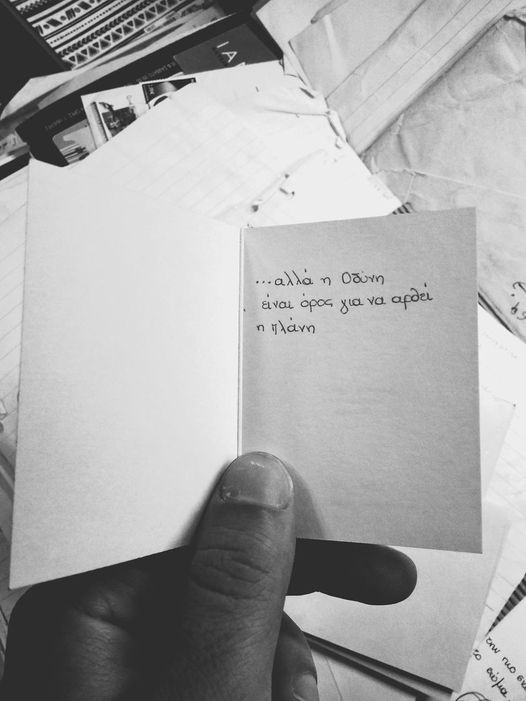 ...αλλά η Οδύνη
είναι όρος για να αρθεί
η πλάνη
IAN
την πιο
το σώμα